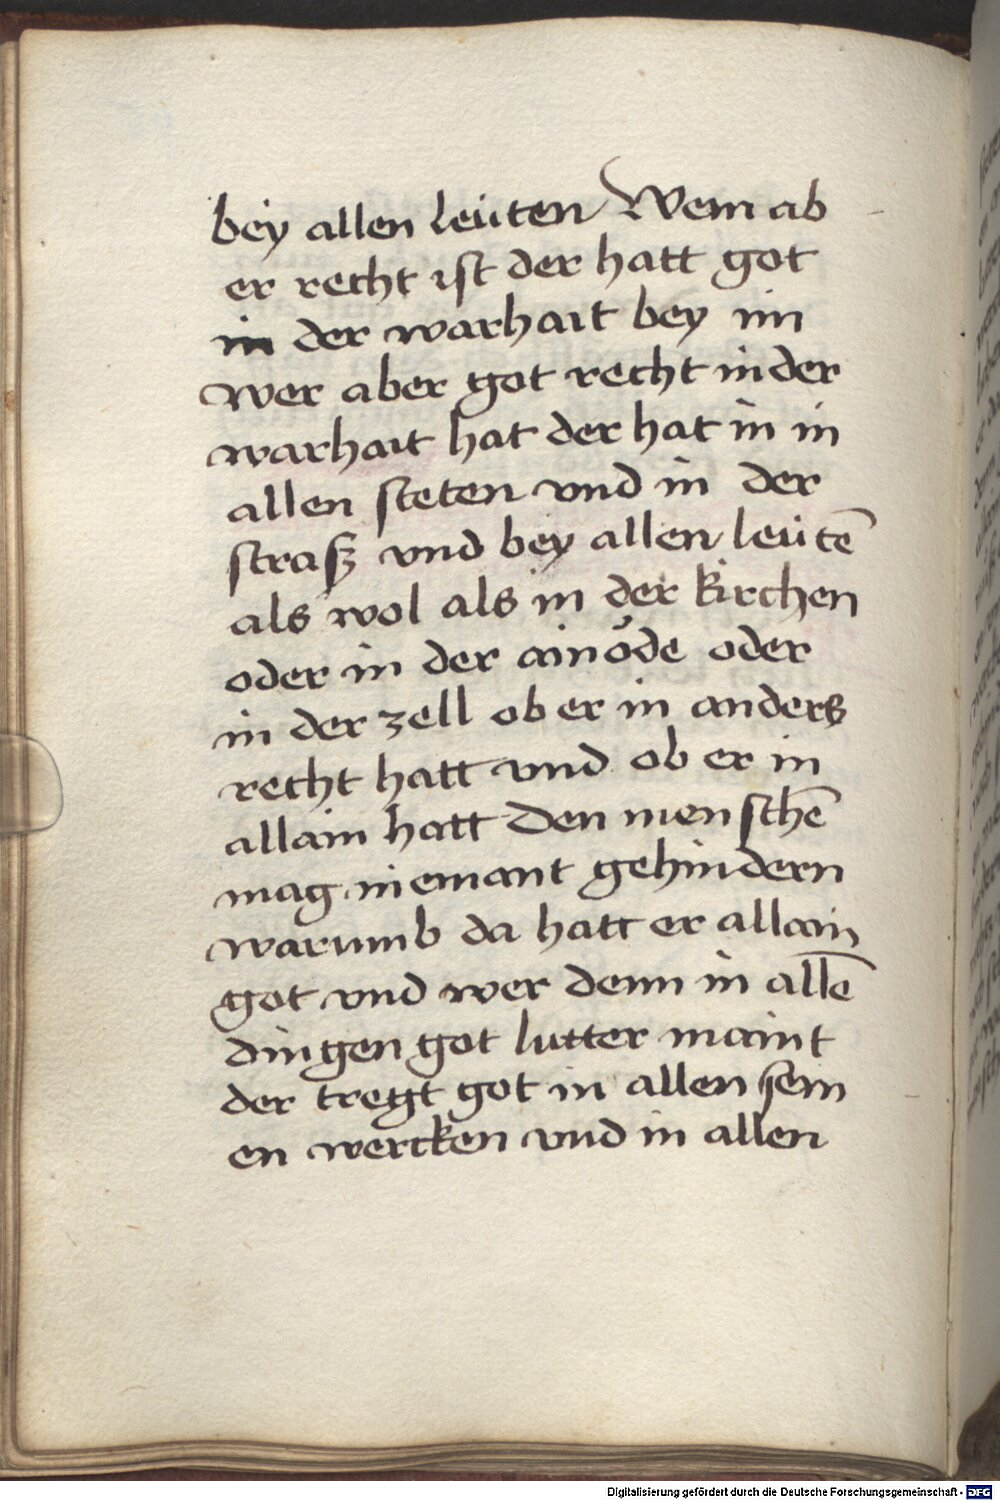 bey allen leüten Wem ab
er recht ist der hatt got
in der warhait bey im
wer aber got recht in der
warhait hat der hat in in
allen steten vnd in der
straß vnd bey allen leütē
als wol als in der kirchen
oder in der ainöde oder
in der zell ob er in anders
recht hatt vnd ob er in
allain hatt Den menschē
mag niemant gehindern
warumb da hatt er allain
got vnd wer denn in allē
dingen got lutter maint
der tregt got in allen sein
en wercken vnd in allen
Digitalisierung gefördert durch die Deutsche Forschungsgemeinschaft - DFG